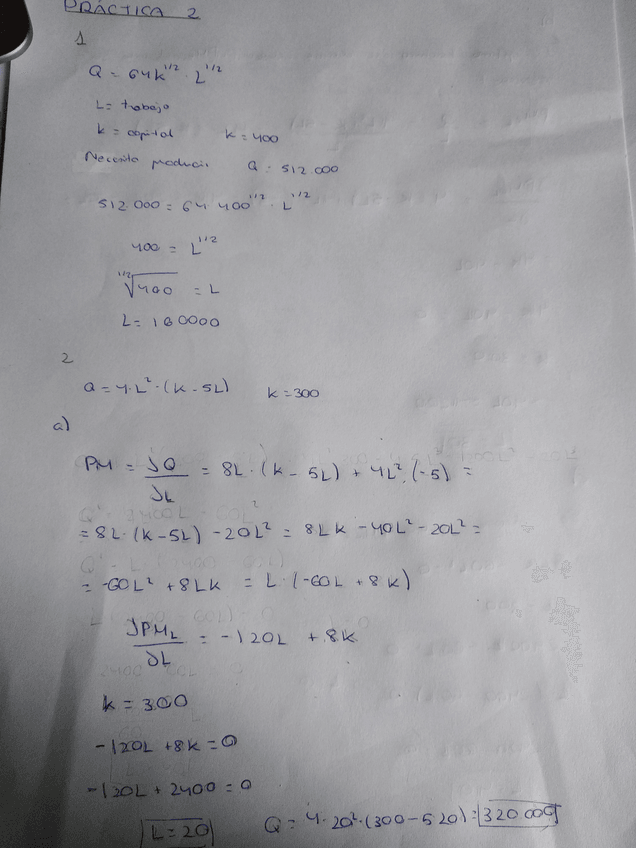 PRÁCTICA 2
1
Q = 64K^1/2 · L^1/2
L = trabajo
k = capital K = 400
Necesito producir Q = 512.000
512.000 = 64 400^1/2 · L^1/2
400 = L^1/2
^1/2√400 = L
L = 160000
2
Q = 4·L²·(K - 5L) K = 300
a)
PM = ∂Q/∂L = 8L·(K - 5L) + 4L²·(-5) =
= 8L·(K-5L) - 20L² = 8LK - 40L² - 20L² =
= -60L² + 8LK = L·(-60L + 8K)
∂PM_L/∂L = -120L + 8K
K = 300
-120L + 8K = 0
-120L + 2400 = 0
L = 20 Q = 4·20²·(300 - 5 20) = 320.000